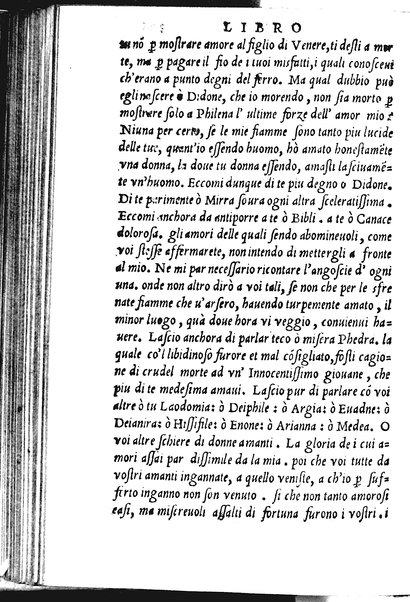 LIBRO
tu nõ ꝑ mostrare amore al figlio di Venere, ti desti a mor
te, ma ꝑ pagare il fio de i tuoi misfatti, i quali conoscevi
ch'erano a punto degni del ferro. Ma qual dubbio può
egli nascere ò Didone, che io morendo, non sia morto ꝑ
mostrare solo a Philena l' ultime forze dell' amor mio?
Niuna per certo, se le mie fiamme sono tanto piu lucide
delle tue, quant'io essendo huomo, hò amato honestamẽte
vna donna, la doue tu donna essendo, amasti lasciuamẽ-
te vn'huomo. Eccomi dunque di te piu degno o Didone.
Di te parimente ò Mirra soura ogni altra sceleratissima.
Eccomi anchora da antiporre a te ò Bibli. a te ò Canace
dolorosa. gli amori delle quali sendo abomineuoli, come
voi stesse affermarete, non intendo di mettergli a fronte
al mio. Ne mi par necessario ricontare l'angoscie d' ogni
una. onde non altro dirò a voi tali, se non che per le sfre
nate fiamme che u'arsero, hauendo turpemente amato, il
minor luogo, quà doue hora vi veggio, conuienui ha-
uere. Lascio anchora di parlar teco ò misera Phedra. la
quale co'l libidinoso furore et mal cõsigliato, fosti cagio-
ne di crudel morte ad vn' Innocentissimo giouane, che
piu di te medesima amaui. Lascio pur di parlare cõ voi
altre ò tu Laodomia: ò Deiphile: ò Argia: ò Euadne: ò
Deianira: ò Hissifile: ò Enone: ò Arianna: ò Medea. O
voi altre schiere di donne amanti. La gloria de i cui a-
mori assai par dissimile da la mia. poi che voi tutte da
vostri amanti ingannate, a quello veniste, a ch'io ꝑ suf-
ferto inganno non son venuto. si che non tanto amorosi
casi, ma misereuoli assalti di fortuna furono i vostri. i